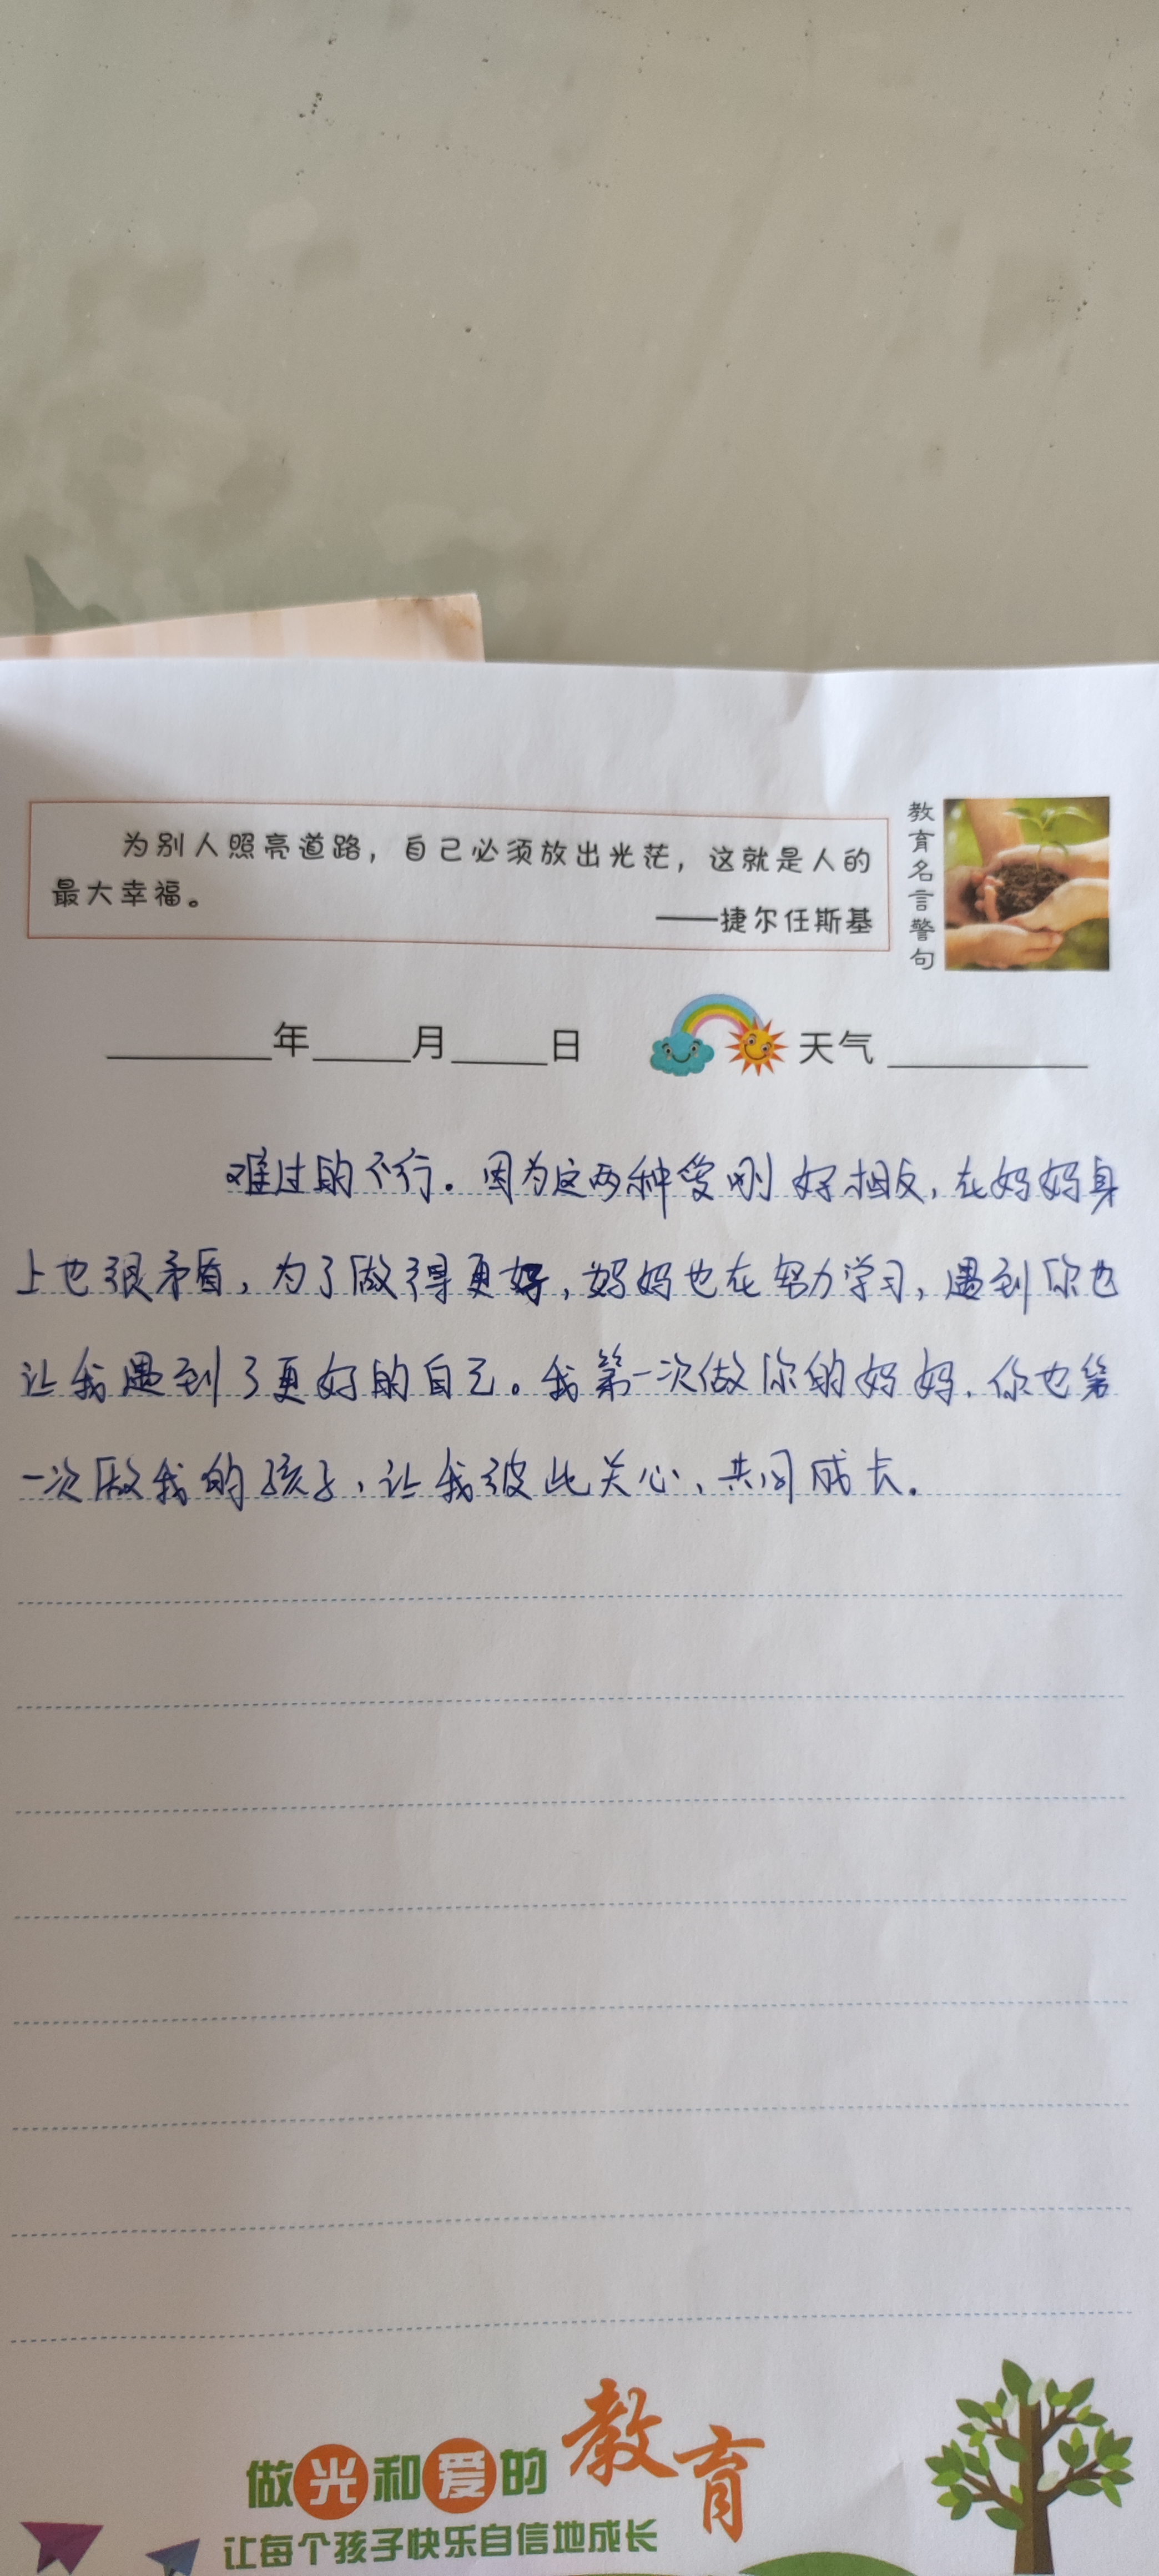 为别人照亮道路，自己必须放出光茫，这就是人的
最大幸福。
——捷尔任斯基
教育名言警句
年 月 日 天气
难过的不行。因为这两种爱刚好相反，在妈妈身
上也很矛盾，为了做得更好，妈妈也在努力学习，遇到你也
让我遇到了更好的自己。我第一次做你的妈妈，你也第
一次做我的孩子，让我彼此关心、共同成长。
做光和爱的教育
让每个孩子快乐自信地成长